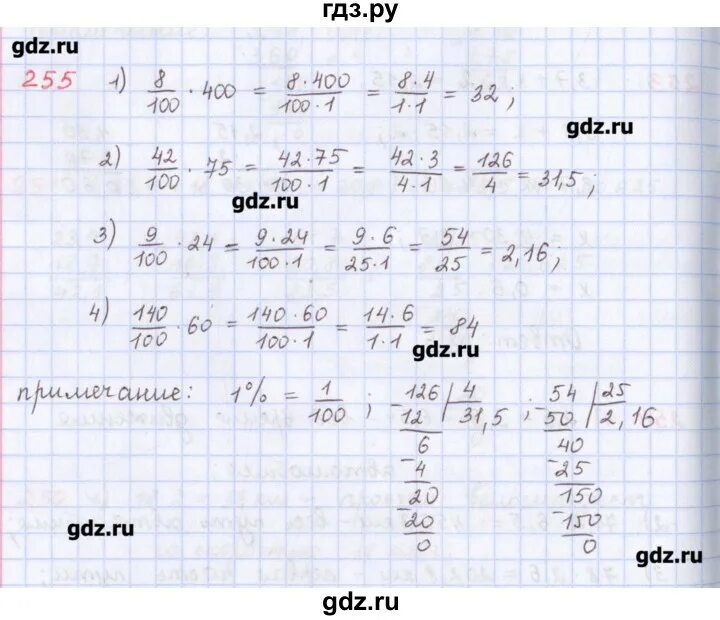 гдз.ру
gdz.ru
255 1) 8/100 · 400 = 8·400/100·1 = 8·4/1·1 = 32;
gdz.ru
2) 42/100 · 75 = 42·75/100·1 = 42·3/4·1 = 126/4 = 31,5;
gdz.ru
3) 9/100 · 24 = 9·24/100·1 = 9·6/25·1 = 54/25 = 2,16;
4) 140/100 · 60 = 140·60/100·1 = 14·6/1·1 = 84
gdz.ru
примечание: 1% = 1/100 ; -126 | 4 ; -54 | 25
12 | 31,5 50 | 2,16
6 40
-4 -25
20 150
-20 -150
0 0
gdz.ru
gdz.ru
gdz.ru